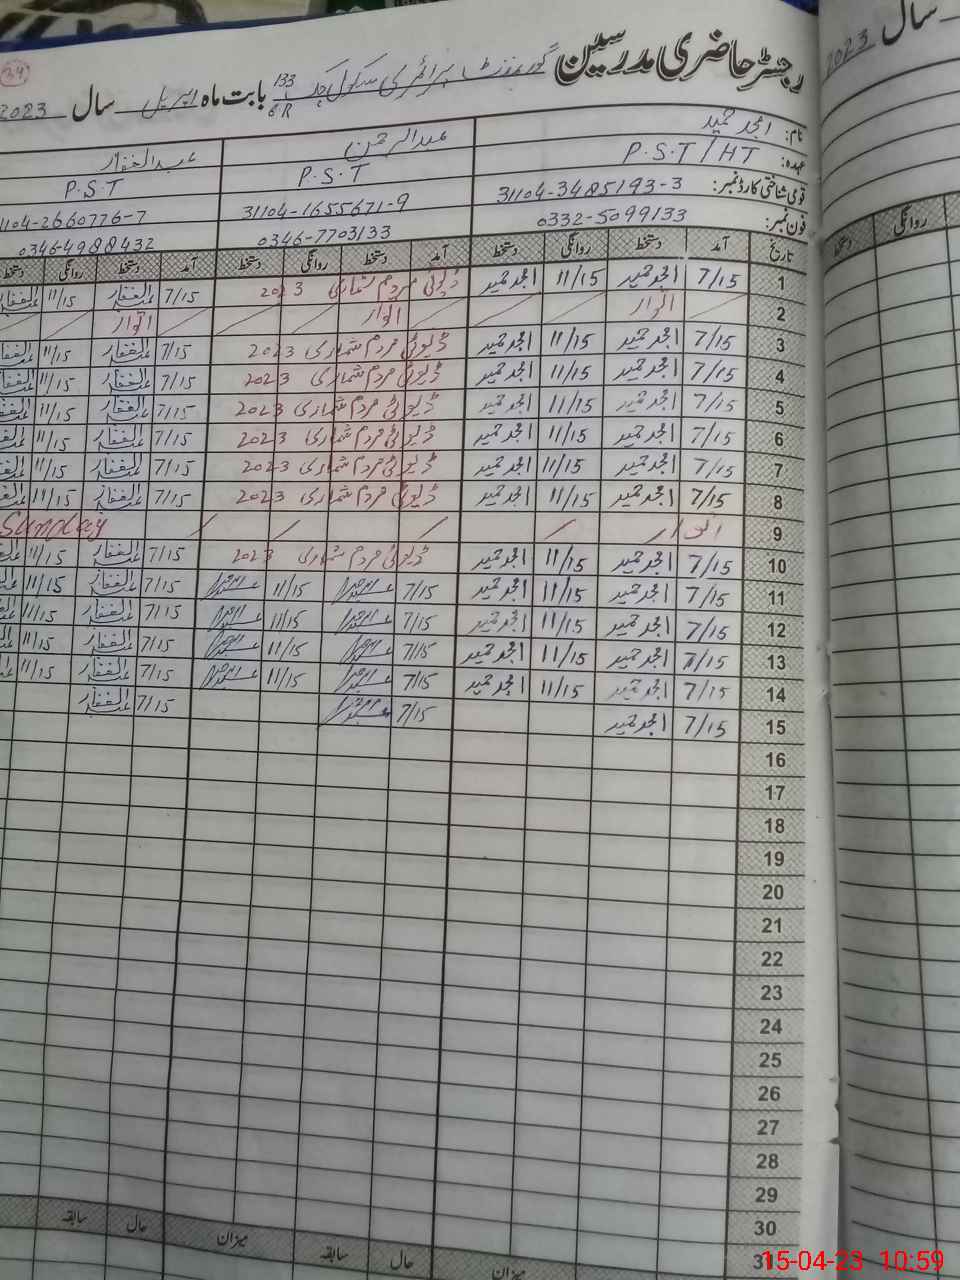 رجسٹر حاضری مدرسین گورنمنٹ پرائمری سکول چک 133/6R بابت ماہ اپریل سال 2023
نام: امجد حمید عبدالرحمن عبدالغفار
عہدہ: P.S.T/HT P.S.T P.S.T
قومی شناختی کارڈ نمبر: 31104-3485193-3 31104-1655671-9 1104-2660776-7
فون نمبر: 0332-5099133 0346-7703133 0346-4988432
تاریخ آمد دستخط روانگی دستخط آمد دستخط روانگی دستخط آمد دستخط روانگی دستخط
1 7/15 امجد حمید 11/15 امجد حمید ڈیوٹی مردم شماری 2023 7/15 عبدالغفار 11/15 عبدالغفار
2 اتوار اتوار اتوار
3 7/15 امجد حمید 11/15 امجد حمید ڈیوٹی مردم شماری 2023 7/15 عبدالغفار 11/15 عبدالغفار
4 7/15 امجد حمید 11/15 امجد حمید ڈیوٹی مردم شماری 2023 7/15 عبدالغفار 11/15 عبدالغفار
5 7/15 امجد حمید 11/15 امجد حمید ڈیوٹی مردم شماری 2023 7/15 عبدالغفار 11/15 عبدالغفار
6 7/15 امجد حمید 11/15 امجد حمید ڈیوٹی مردم شماری 2023 7/15 عبدالغفار 11/15 عبدالغفار
7 7/15 امجد حمید 11/15 امجد حمید ڈیوٹی مردم شماری 2023 7/15 عبدالغفار 11/15 عبدالغفار
8 7/15 امجد حمید 11/15 امجد حمید ڈیوٹی مردم شماری 2023 7/15 عبدالغفار 11/15 عبدالغفار
9 اتوار Sunday
10 7/15 امجد حمید 11/15 امجد حمید ڈیوٹی مردم شماری 2023 7/15 عبدالغفار 11/15 عبدالغفار
11 7/15 امجد حمید 11/15 امجد حمید 7/15 11/15 7/15 عبدالغفار 11/15 عبدالغفار
12 7/15 امجد حمید 11/15 امجد حمید 7/15 11/15 7/15 عبدالغفار 11/15 عبدالغفار
13 7/15 امجد حمید 11/15 امجد حمید 7/15 11/15 7/15 عبدالغفار 11/15 عبدالغفار
14 7/15 امجد حمید 11/15 امجد حمید 7/15 11/15 7/15 عبدالغفار 11/15 عبدالغفار
15 7/15 امجد حمید 7/15 7/15 عبدالغفار
16
17
18
19
20
21
22
23
24
25
26
27
28
29
30
31
میزان حال سابقہ میزان حال سابقہ
سال 2023
روانگی دستخط
15-04-23 10:59